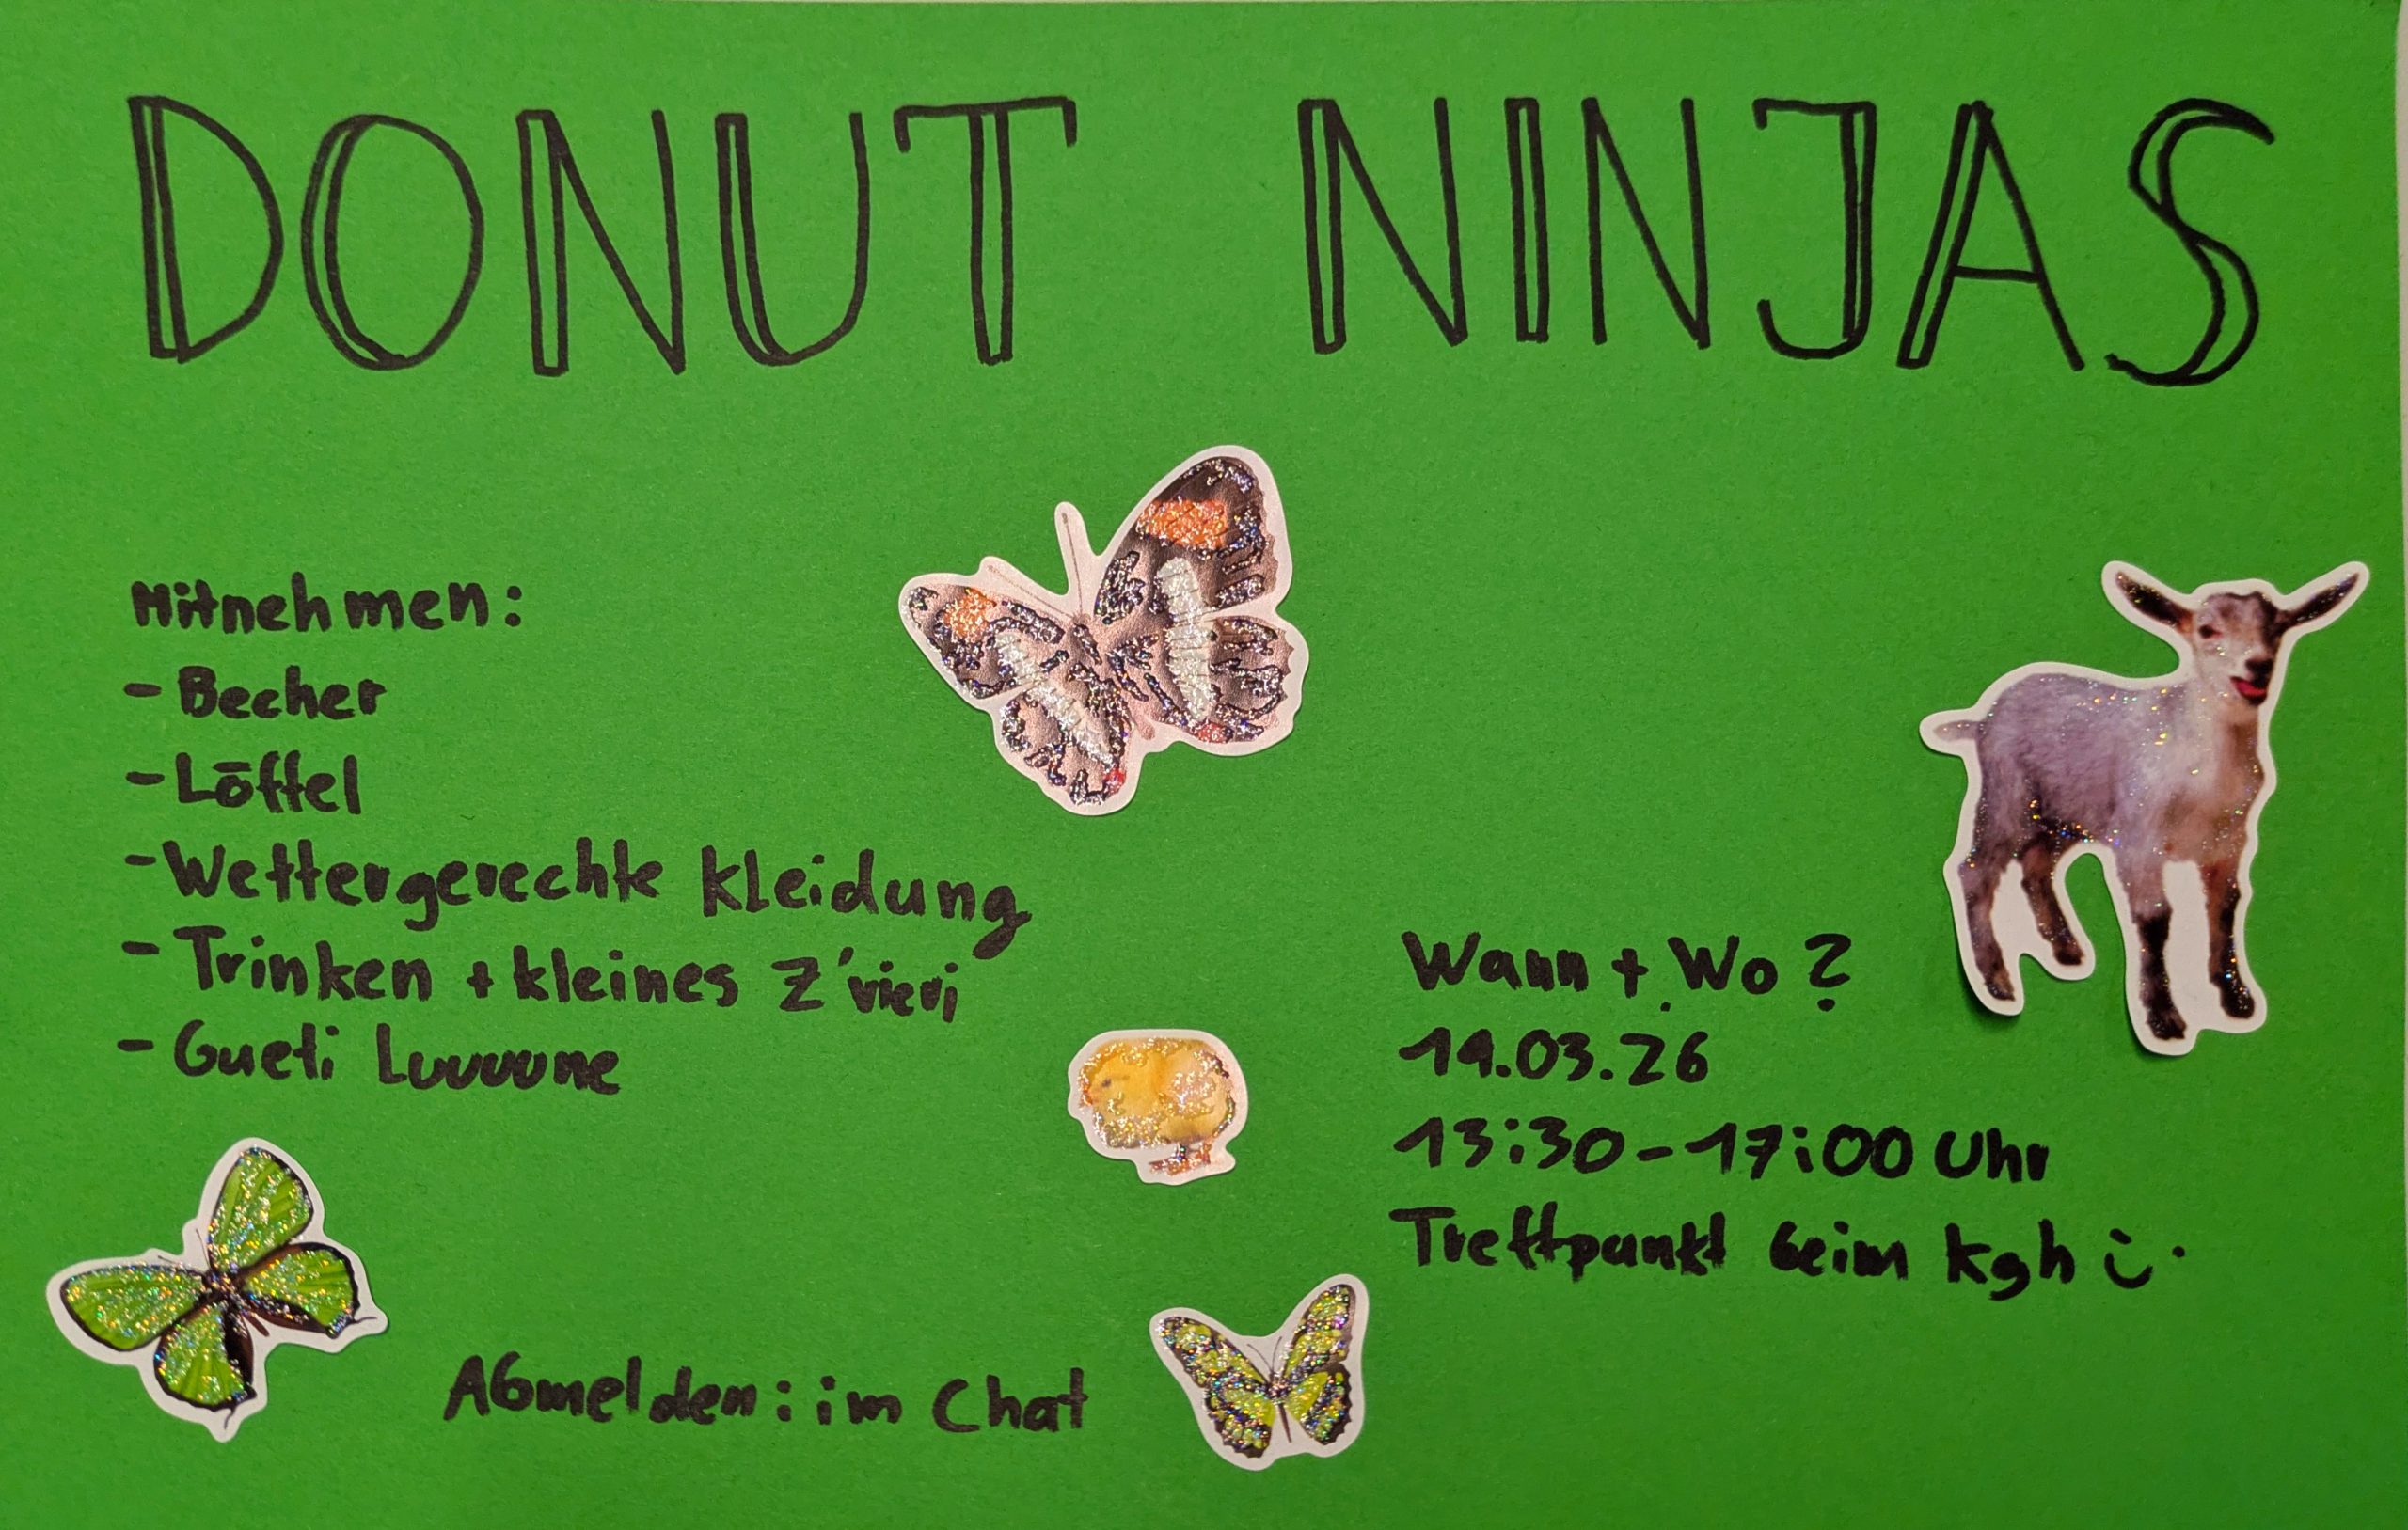 DONUT NINJAS
Mitnehmen:
- Becher
- Löffel
- Wettergerechte Kleidung
- Trinken + kleines Z'vieri
- Gueti Luuuune
Wann + Wo?
14.03.26
13:30-17:00 Uhr
Treffpunkt beim Kgh
Abmelden: im Chat